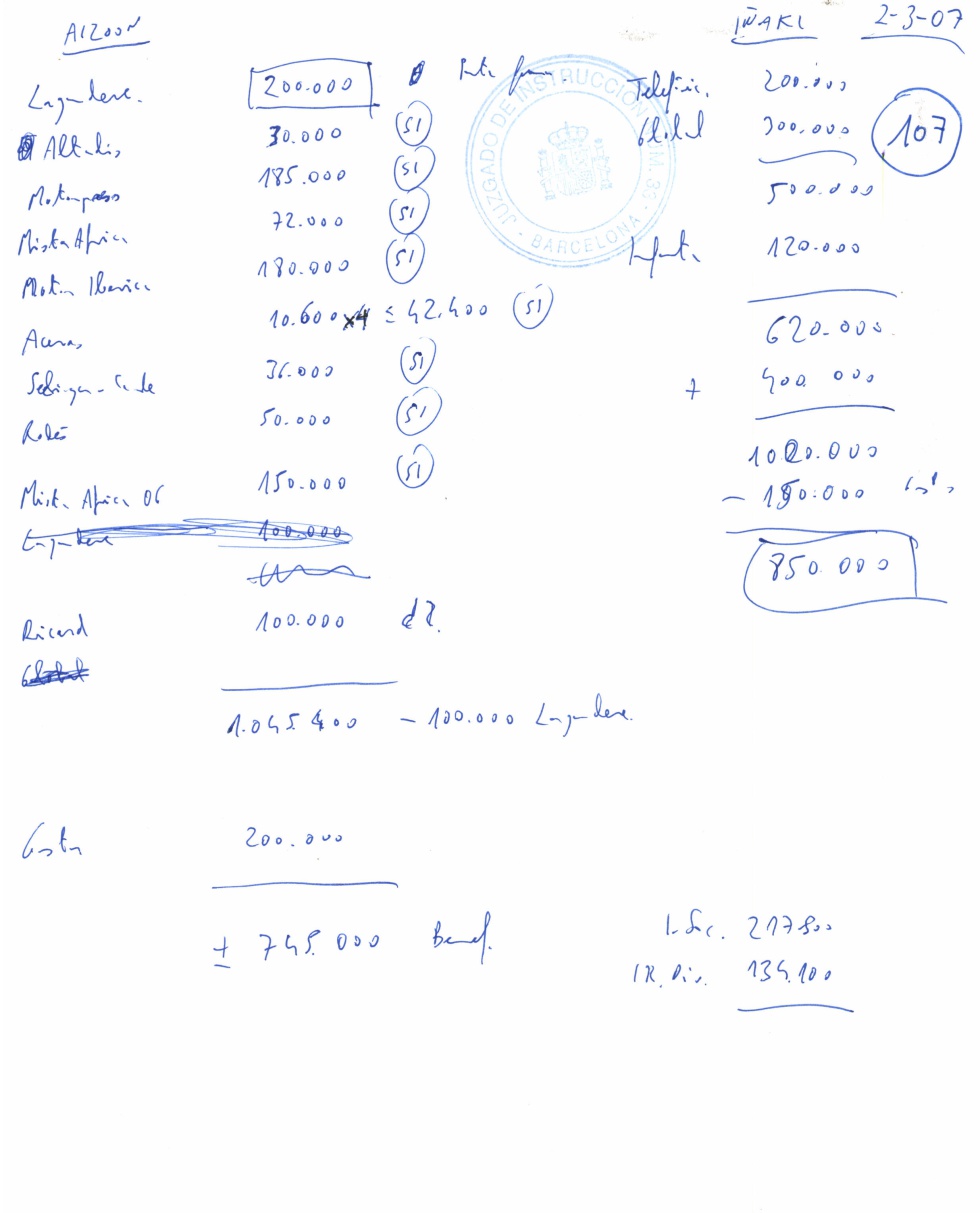 AIZOON
IÑAKI 2-3-07
Lagardere. 200.000
Altadis 30.000 SI
Motorpress 185.000 SI
Mixta Africa 72.000 SI
Motor Iberica 180.000 SI
Aceras 10.600 x4 = 42.400 SI
36.000 SI
Rodés 50.000 SI
Mixta Africa 06 150.000 SI
Lagardere 100.000
Ricard 100.000 d?
Global
1.045.400 - 100.000 Lagardere.
Gastos 200.000
± 745.000 Benef.
Telefónica. 200.000
Global 300.000
107
500.000
Infanta 120.000
620.000
+ 400.000
1020.000
- 180.000 Gastos
850.000
I. Soc. 217500
IR. Dis. 134.100
JUZGADO DE INSTRUCCION
BARCELONA